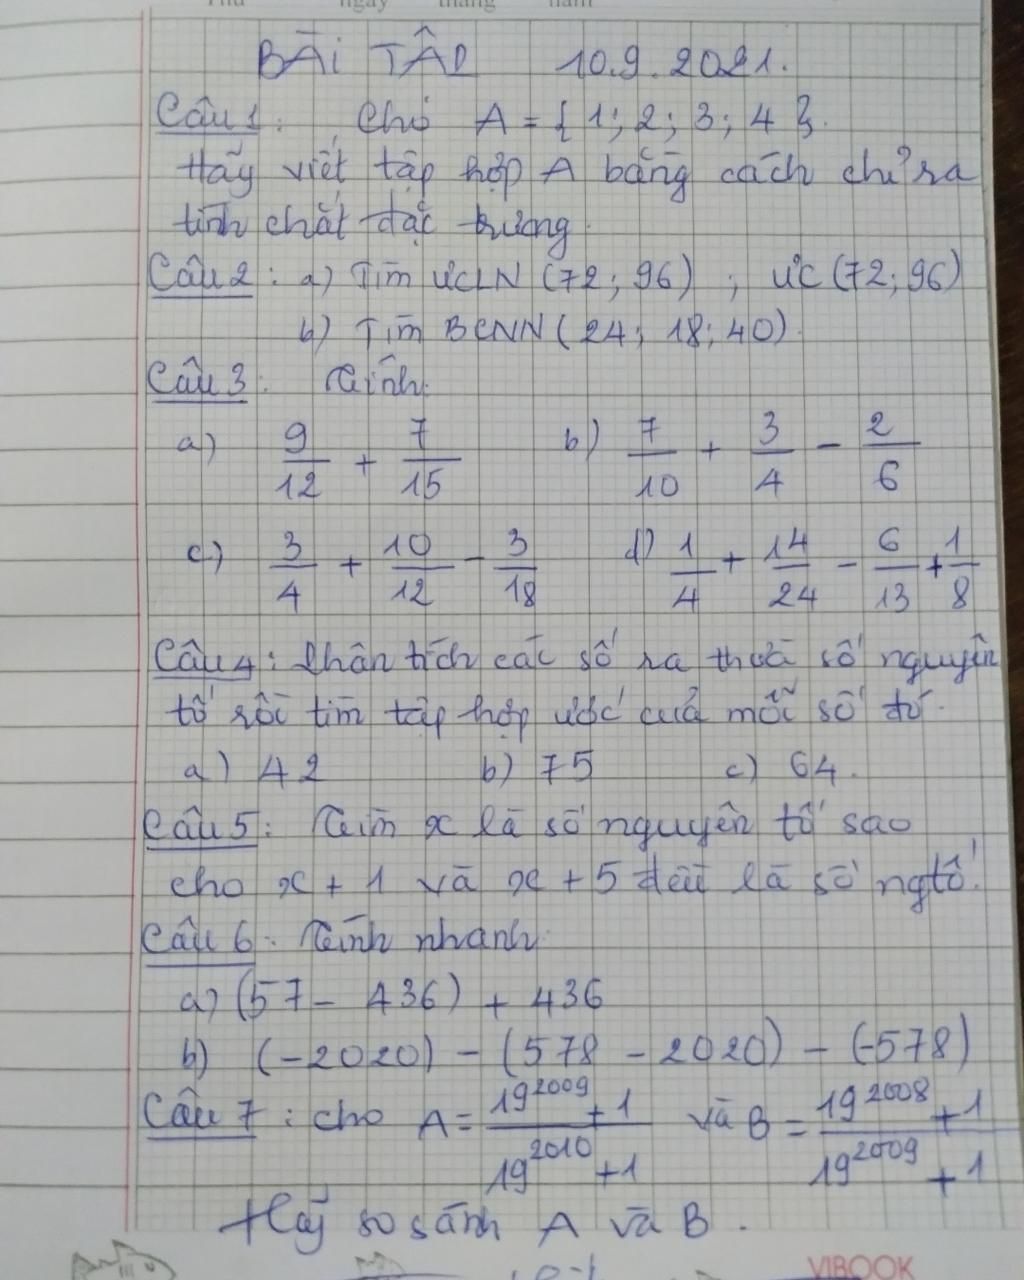 Thứ ngày tháng năm
BÀI TẬP 10.9.2021.
Câu 1: Cho A = { 1; 2; 3; 4 }.
Hãy viết tập hợp A bằng cách chỉ ra
tính chất đặc trưng.
Câu 2: a) Tìm ƯCLN (72; 96) ; ƯC (72; 96)
b) Tìm BCNN (24; 18; 40).
Câu 3: Tính:
a) 9/12 + 7/15 b) 7/10 + 3/4 - 2/6
c) 3/4 + 10/12 - 3/18 d) 1/4 + 14/24 - 6/13 + 1/8
Câu 4: Phân tích các số ra thừa số nguyên
tố rồi tìm tập hợp ước của mỗi số đó.
a) 42 b) 75 c) 64.
Câu 5: Tìm x là số nguyên tố sao
cho x + 1 và x + 5 đều là số ngtố.
Câu 6: Tính nhanh:
a) (57 - 436) + 436
b) (-2020) - (578 - 2020) - (-578)
Câu 7: cho A = (19^2009 + 1)/(19^2010 + 1) và B = (19^2008 + 1)/(19^2009 + 1)
Hãy so sánh A và B.
VIBOOK